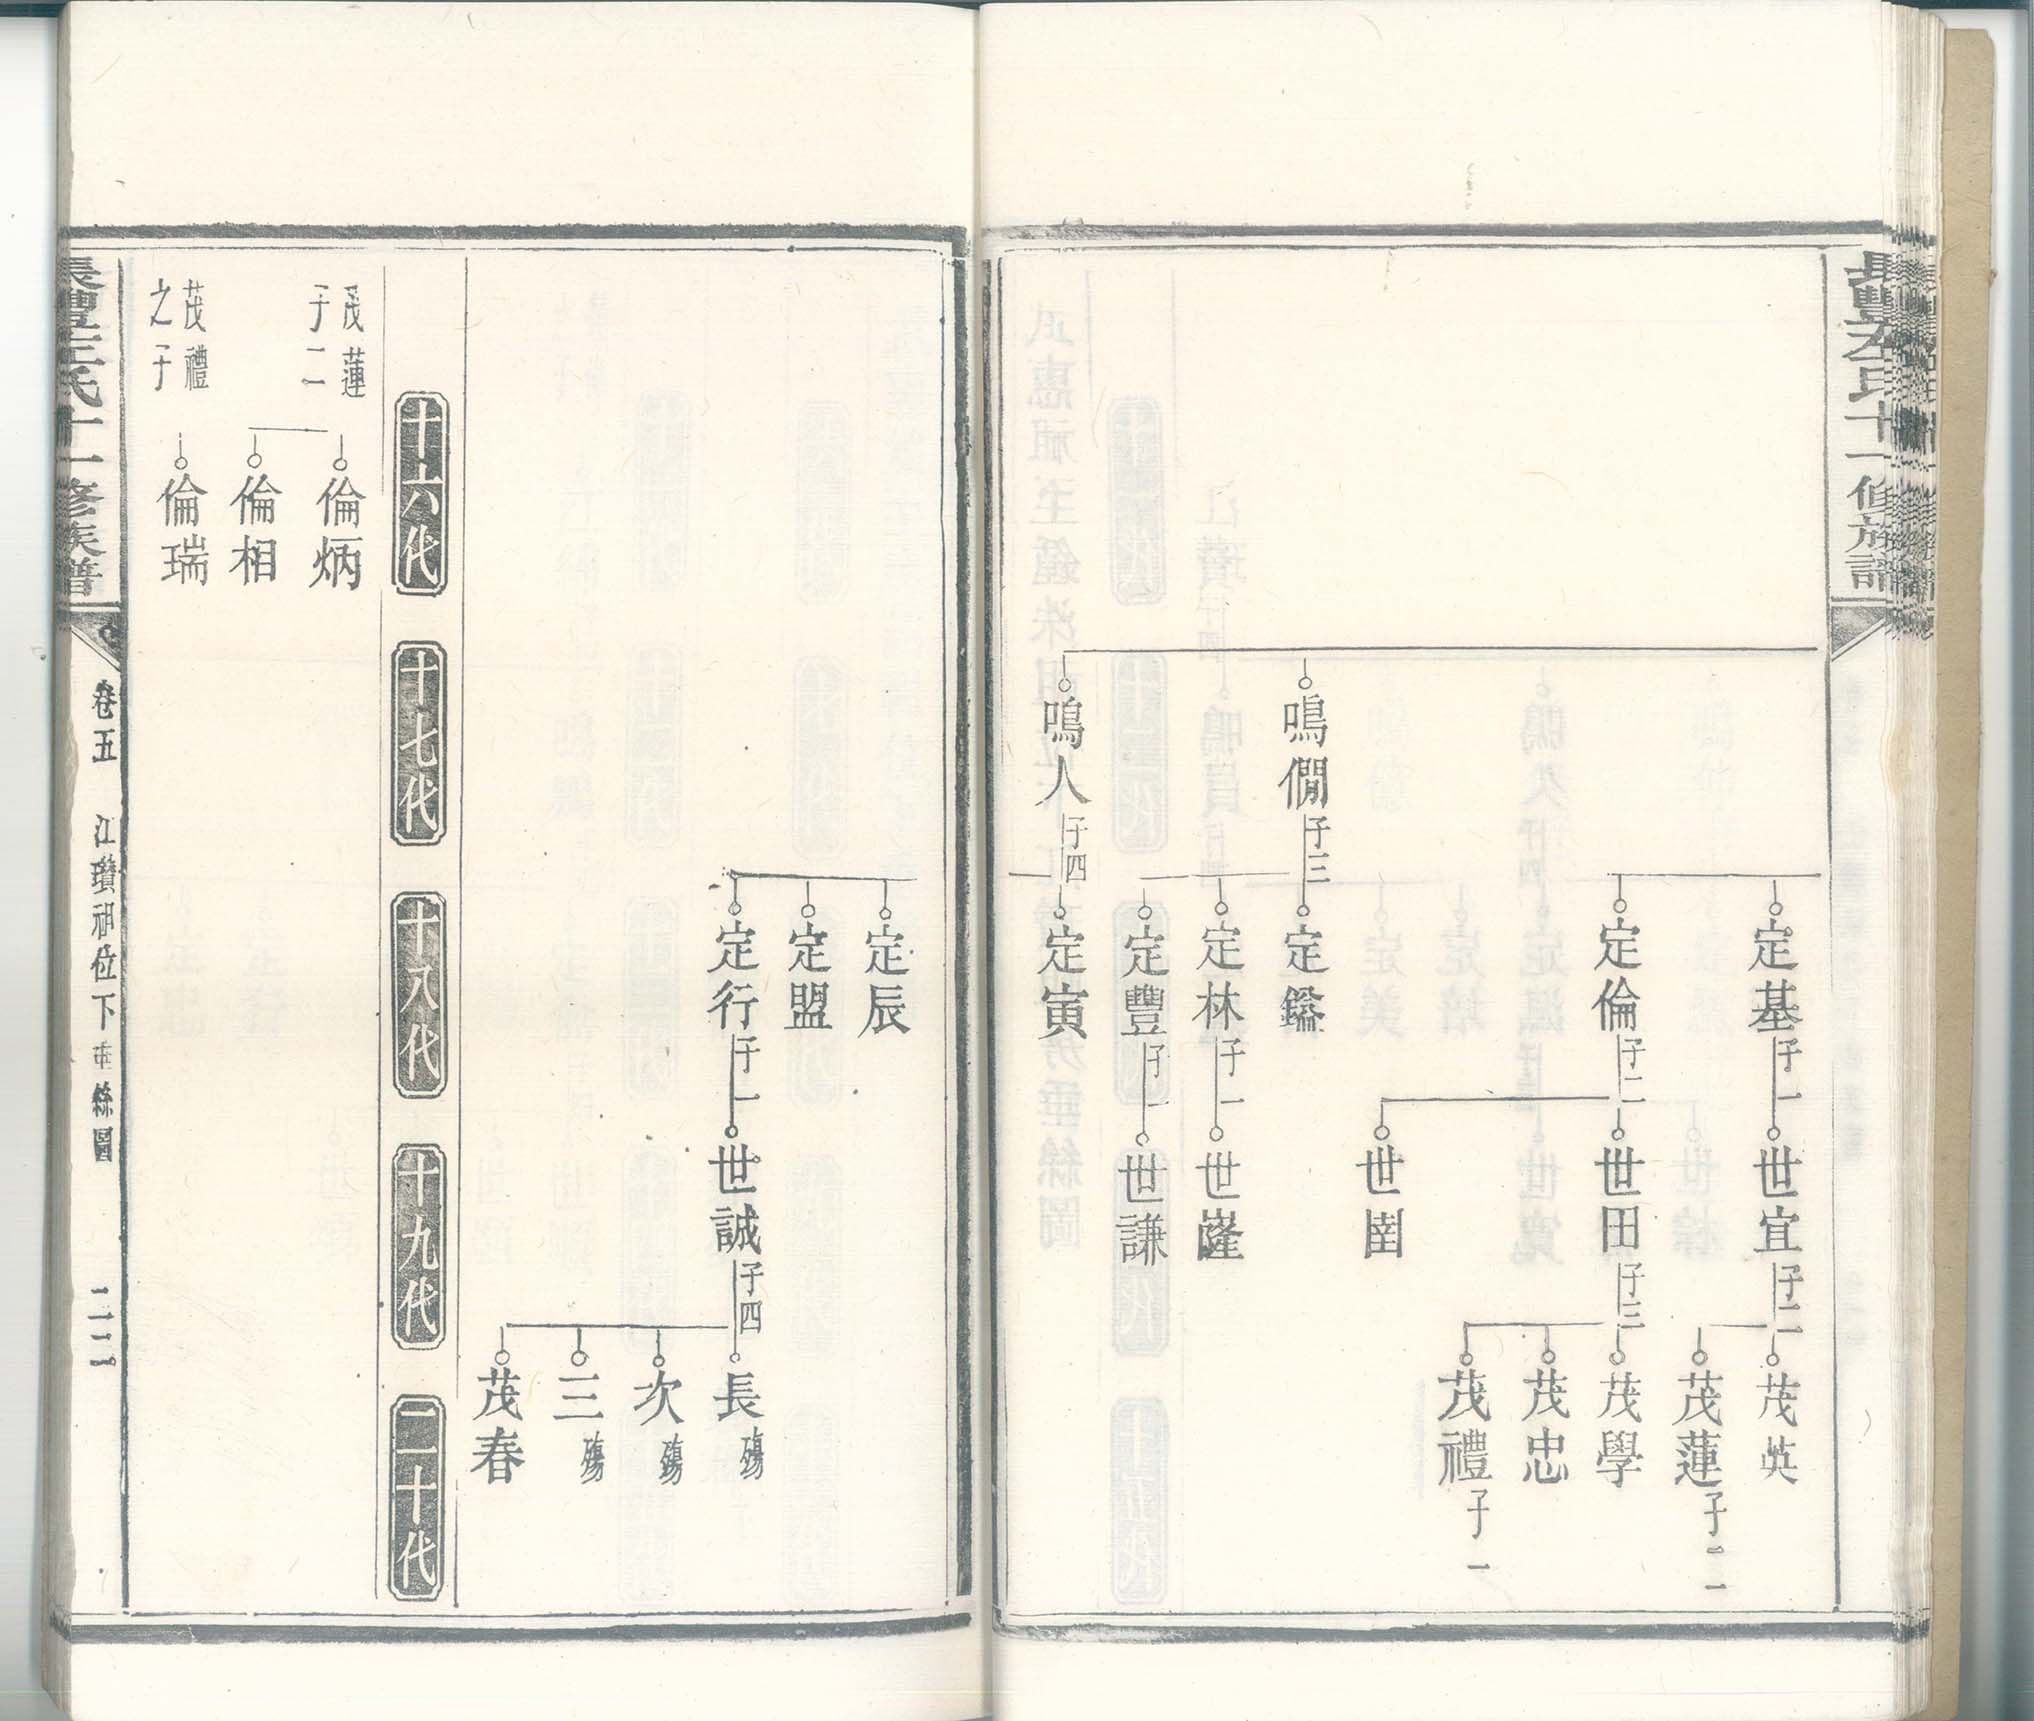 長豐左氏十一修族譜
鳴僩 子三
鳴人 子四
定基 子一
定倫 子二
定鎰
定林 子一
定豐 子一
定寅
世宜 子二
世田 子三
世峀
世嶐
世謙
茂英
茂蓮 子二
茂學
茂忠
茂禮 子一
定辰
定盟
定行 子一
世誠 子四
長 殤
次 殤
三 殤
茂春
十六代
十七代
十八代
十九代
二十代
茂蓮
子二
倫炳
倫相
茂禮
之子
倫瑞
長豐左氏十一修族譜
卷五
江瓚祖位下垂絲圖
二二